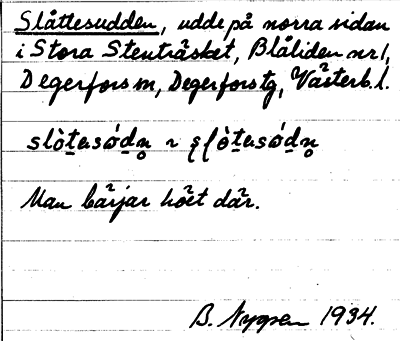 Slåttesudden, udde på norra sidan
i Stora Stenträsket, Blåliden nr 1,
Degerfors m, Degerfors tg, Västerb. l.
slò̱tasód̥n ~ ʂɭò̱tasód̥n
Man bärjar höet där.
B. Nygren 1934.